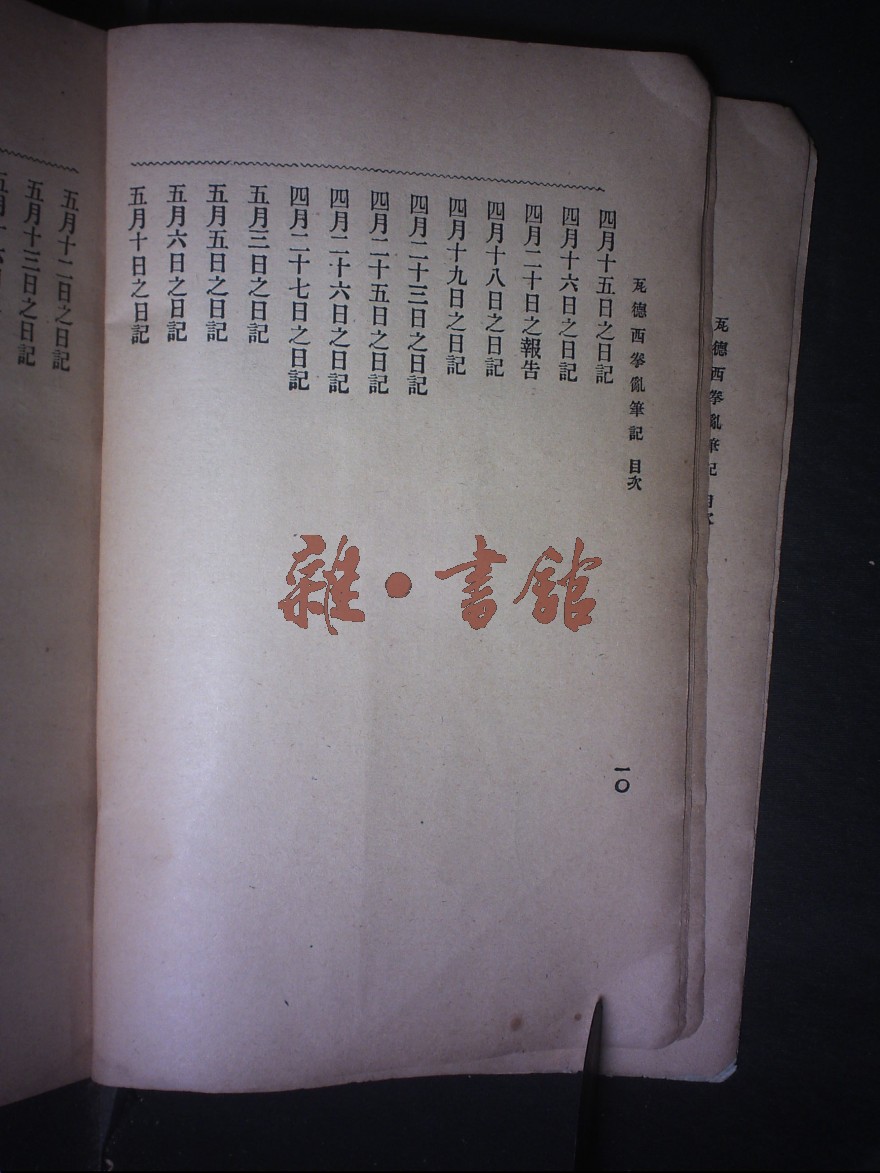 瓦德西拳亂筆記 目次
一〇
四月十五日之日記
四月十六日之日記
四月二十日之報告
四月十八日之日記
四月十九日之日記
四月二十三日之日記
四月二十五日之日記
四月二十六日之日記
四月二十七日之日記
五月三日之日記
五月五日之日記
五月六日之日記
五月十日之日記
五月十二日之日記
五月十三日之日記
瓦德西拳亂筆記 目次
雜•書館